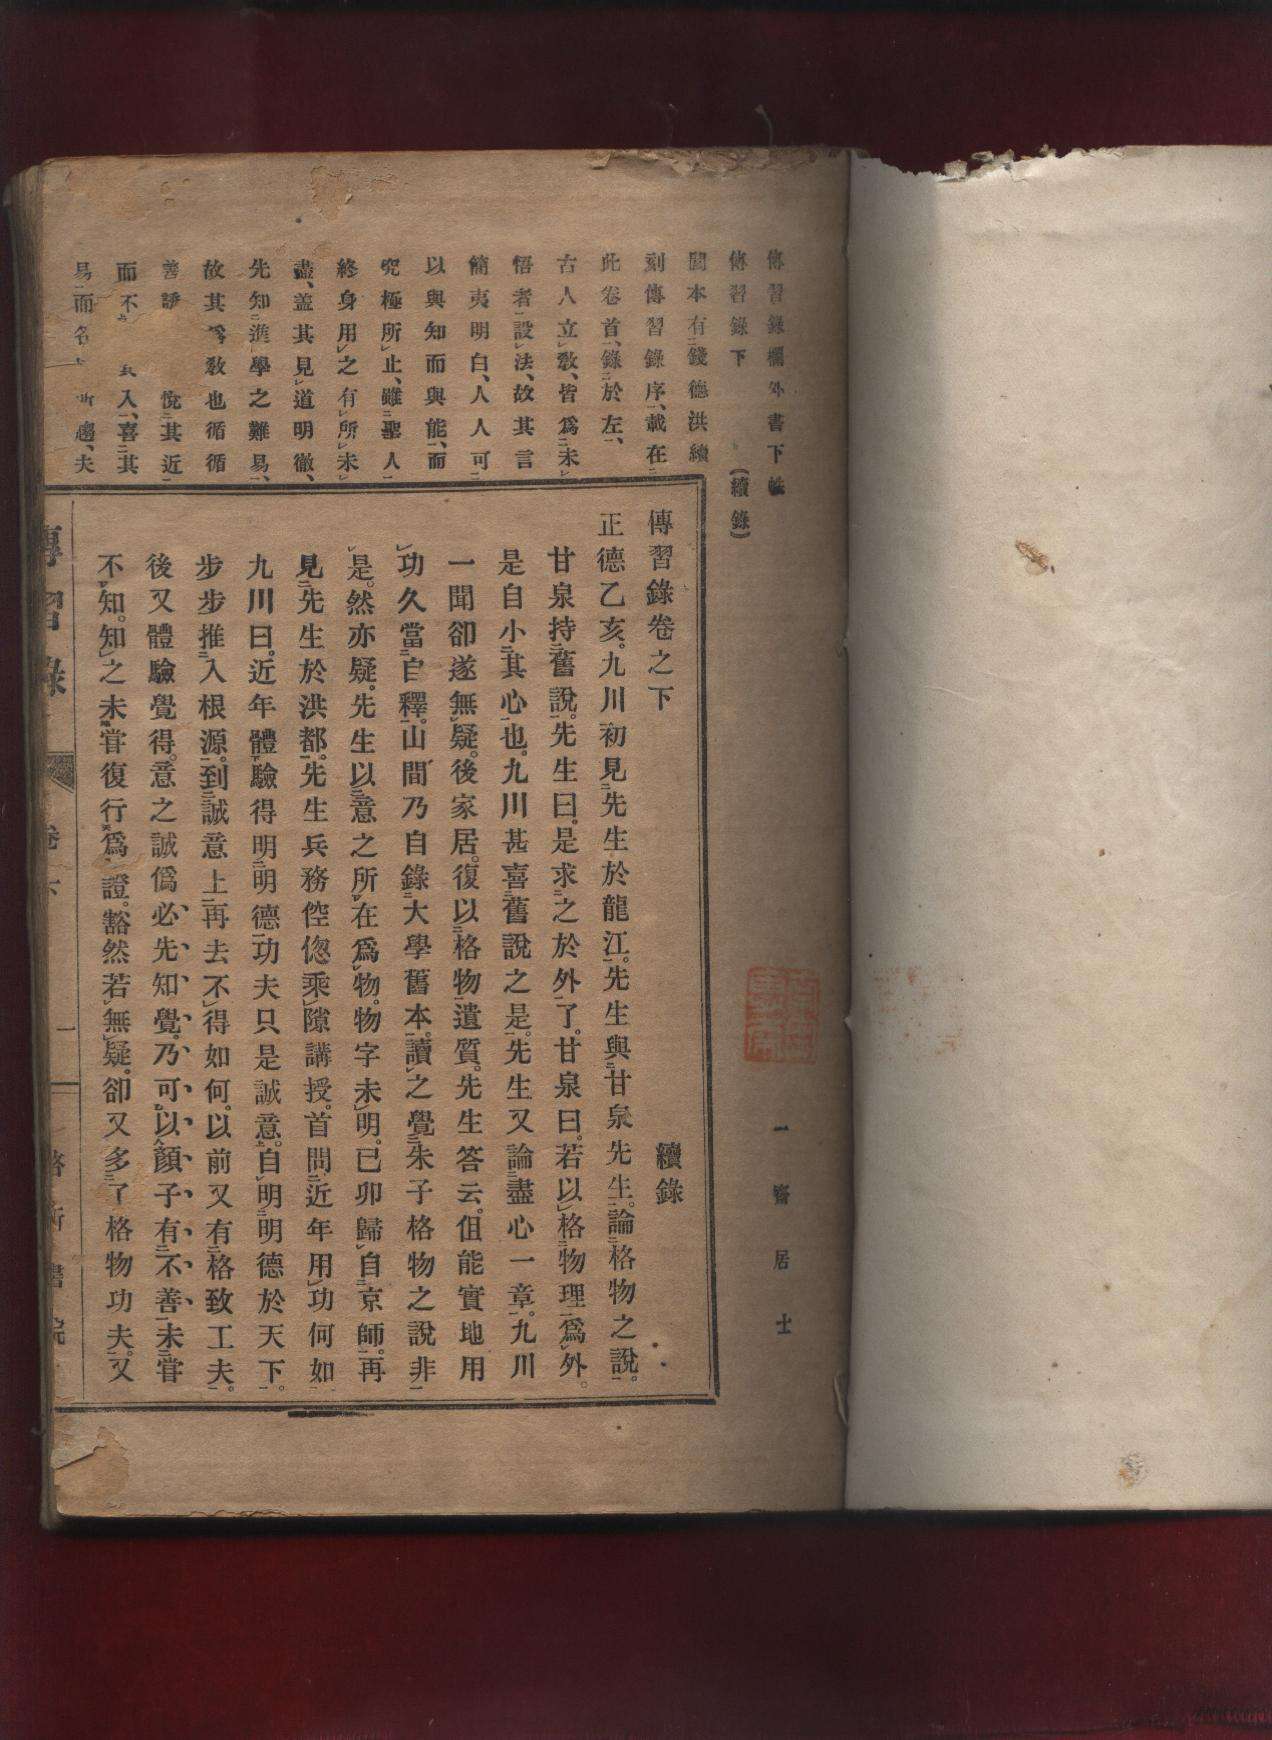 傳習錄欄外書下帙
一齋居士
傳習錄下
(續錄)
閭本有錢德洪續
刻傳習錄序、載在
此卷首、錄於左、
古人立敎、皆爲未
悟者設法、故其言
簡夷明白、人人可
以與知而與能、而
究極所止、雖聖人
終身用之有所未
盡、蓋其見道明徹、
先知進學之難易、
故其爲敎也循循
善誘 悅其近
而不 入、喜其
易而各 趨、夫
傳習錄卷之下 續錄
正德乙亥。九川初見先生於龍江。先生與甘泉先生。論格物之說。
甘泉持舊說。先生曰。是求之於外了。甘泉曰。若以格物理爲外。
是自小其心也。九川甚喜舊說之是。先生又論盡心一章。九川
一聞卻遂無疑。後家居。復以格物遺質。先生答云。但能實地用
功久當自釋。山間乃自錄大學舊本。讀之覺朱子格物之說非
是。然亦疑。先生以意之所在爲物。物字未明。已卯歸自京師。再
見先生於洪都。先生兵務倥傯乘隙講授。首問近年用功何如
九川曰。近年體驗得明明德功夫只是誠意。自明明德於天下。
步步推入根源。到誠意上再去不得如何。以前又有格致工夫。
後又體驗覺得。意之誠僞必先知覺。乃可。以顏子有不善未嘗
不知。知之未嘗復行爲證。豁然若無疑。卻又多了格物功夫。又
傳習錄 卷下 一 啓新書院